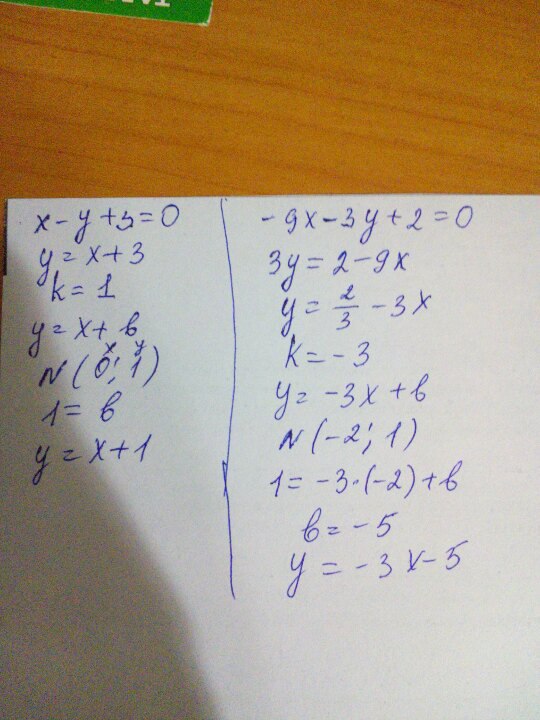 x - y + 3 = 0
y = x + 3
k = 1
y = x + b
x y
N (0; 1)
1 = b
y = x + 1
-9x - 3y + 2 = 0
3y = 2 - 9x
y = 2/3 - 3x
k = -3
y = -3x + b
N (-2; 1)
1 = -3·(-2) + b
b = -5
y = -3x - 5